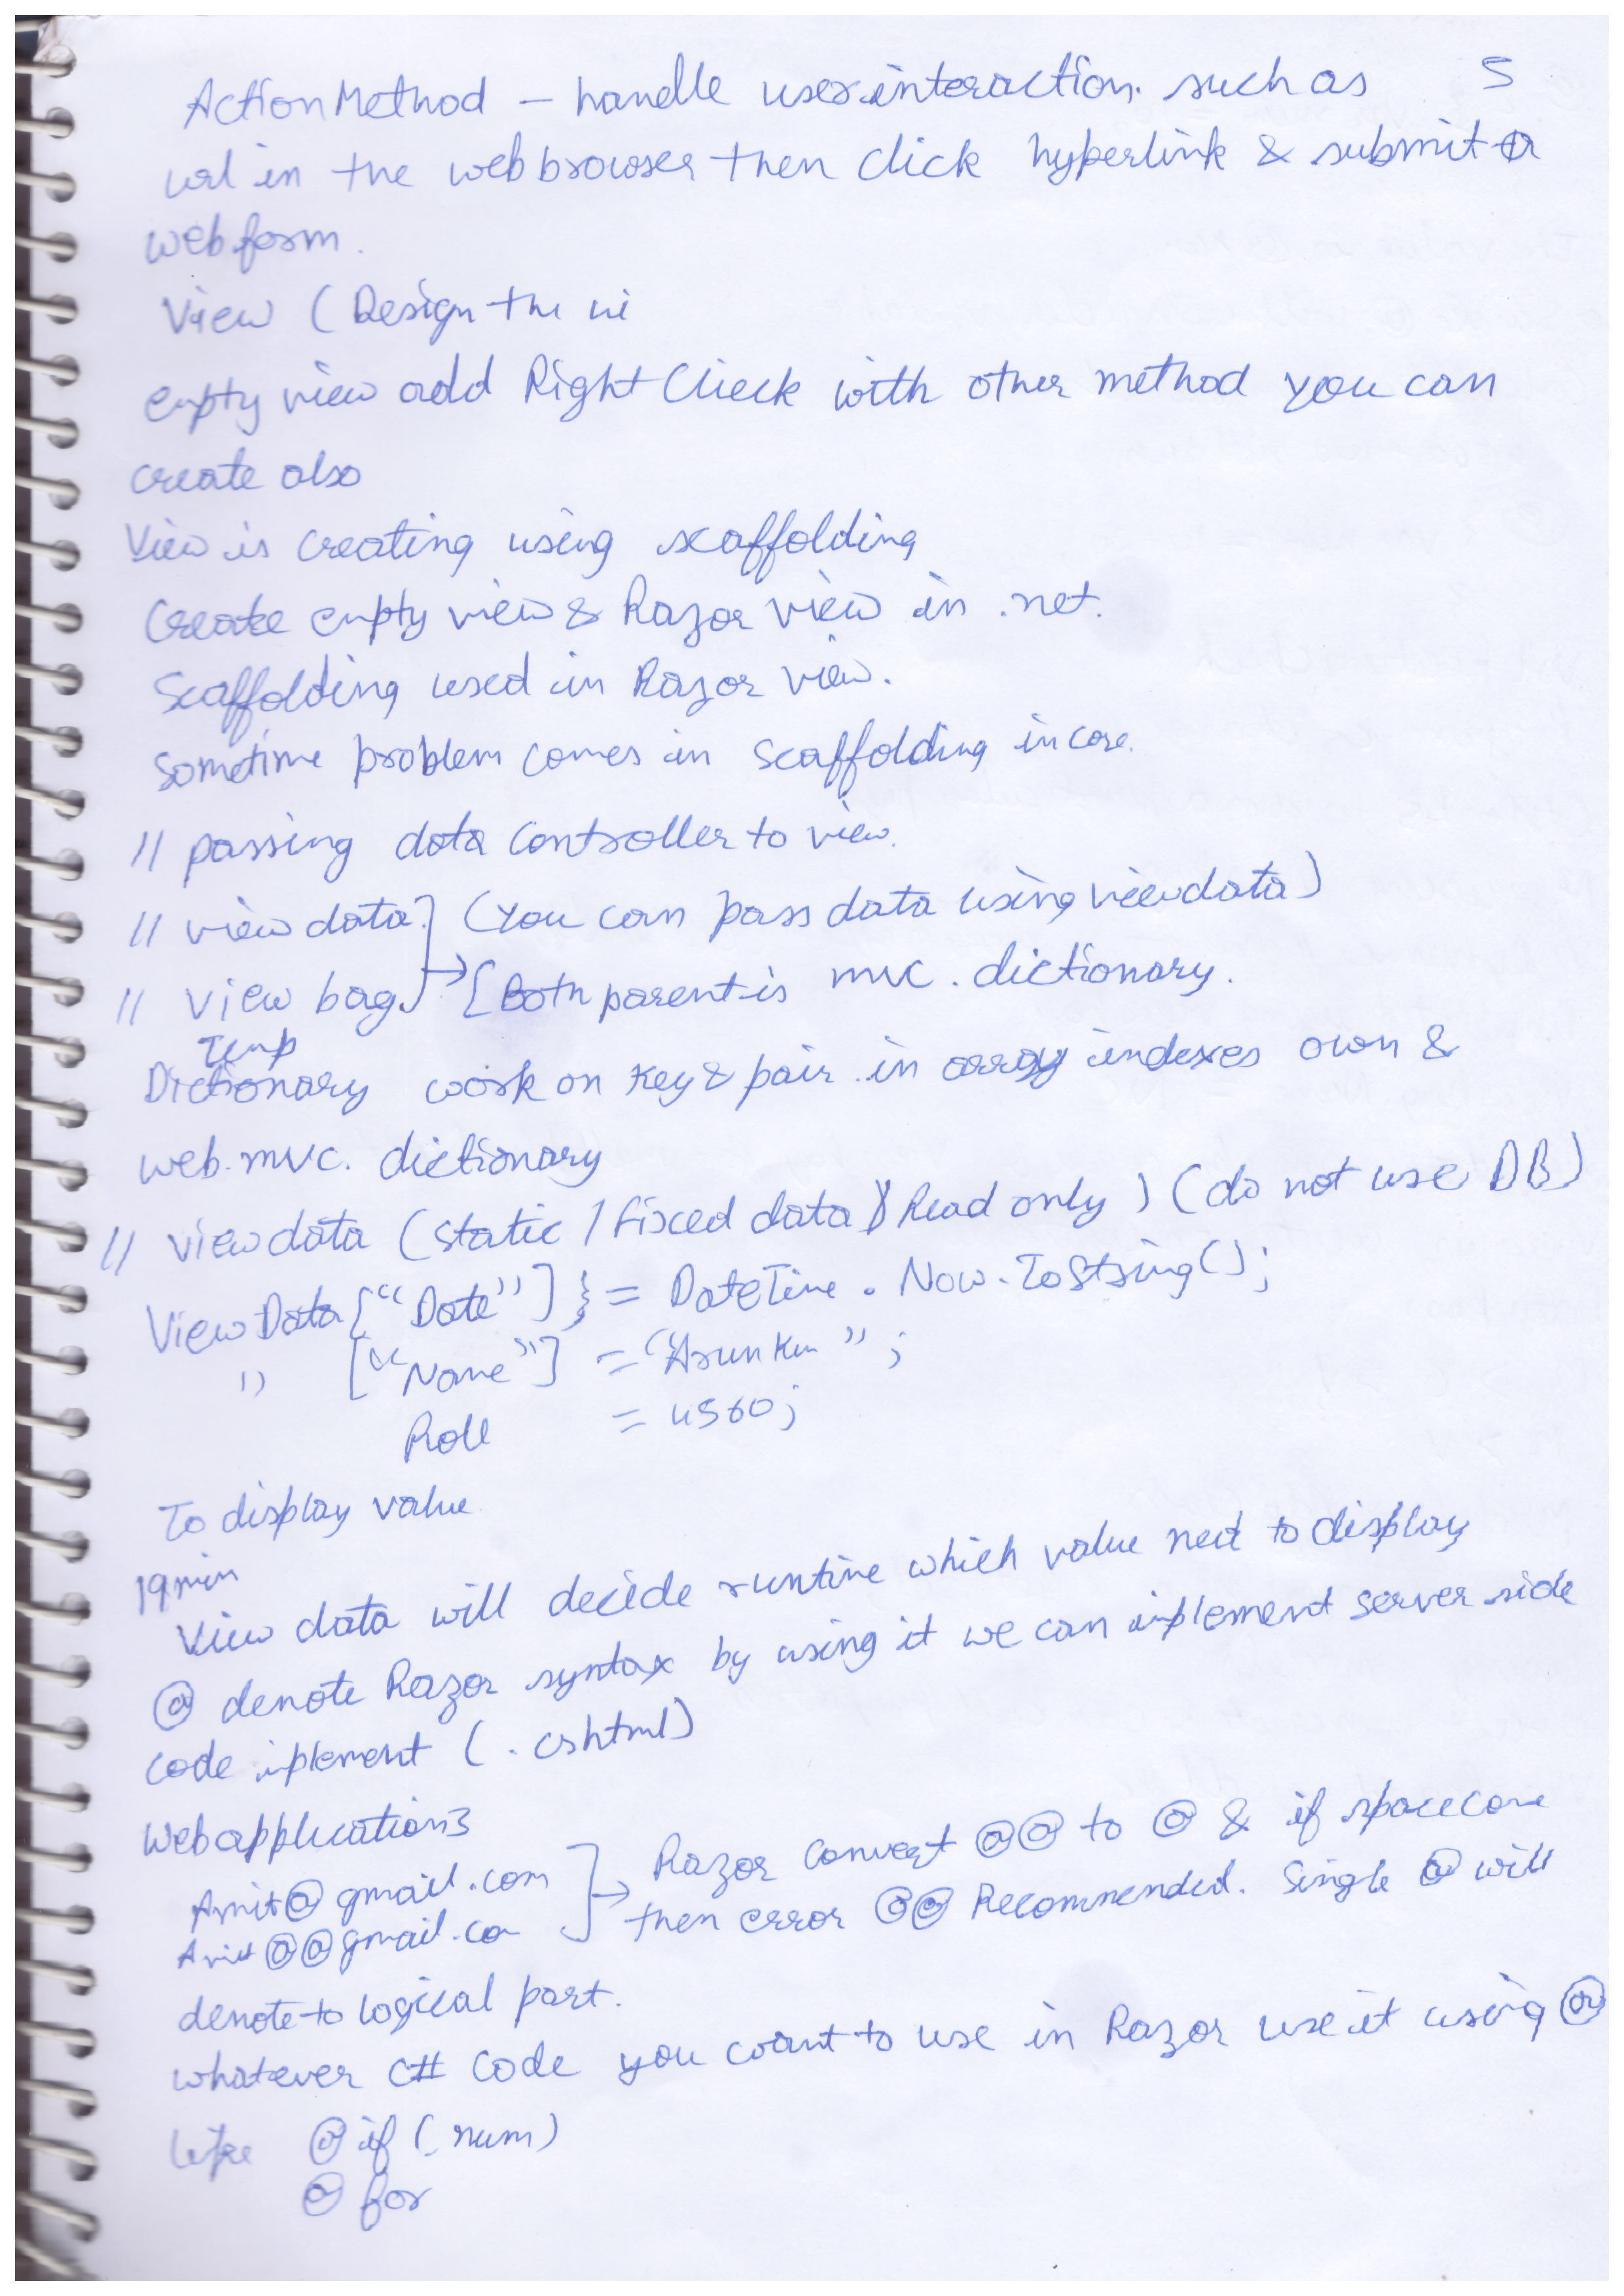 5
ActionMethod – handle user interaction. such as
url in the web browser then click hyperlink & submit a
web form.
View ( Design the ui
empty view add Right Cleck with other method you can
create also
View is creating using scaffolding
Create empty view & Razor view in .net.
Scaffolding used in Razor view.
sometime problem comes in scaffolding in core.
// passing data Controller to view.
// view data } (you can pass data using viewdata)
// view bag } → [Both parent is mvc . dictionary.
Temp
Dictionary work on key & pair in array indexes own &
web.mvc. dictionary
// viewdata (static / fixed data) (Read only ) (do not use DB)
ViewData ["Date"] } = DateTime . Now. ToString();
" ["Name"] = "Arun Km";
Roll = 4560;
To display value
19 min
View data will decide runtime which value need to display
@ denote Razor syntax by using it we can implement server side
code iplement ( . cshtml)
Web application3
Amit@gmail.com ] → Razor Convert @@ to @ & if space come
Amit@@gmail.co then error @@ Recommended. Single @ will
denote to logical part.
whatever C# code you want to use in Razor use it using @
like @ if ( num)
@ for